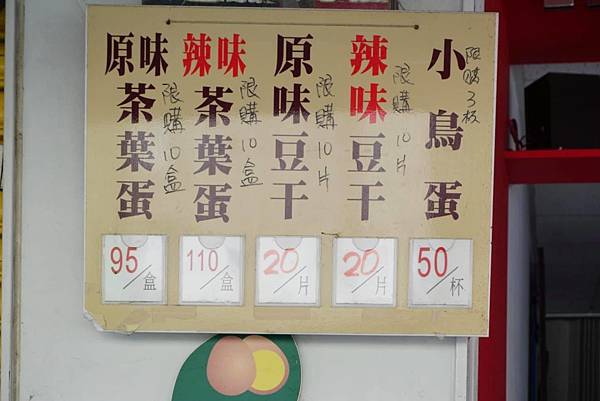 原味茶葉蛋
限購10盒
95/盒
辣味茶葉蛋
限購10盒
110/盒
原味豆干
限購10片
20/片
辣味豆干
限購10片
20/片
小鳥蛋
限購3杯
50/杯